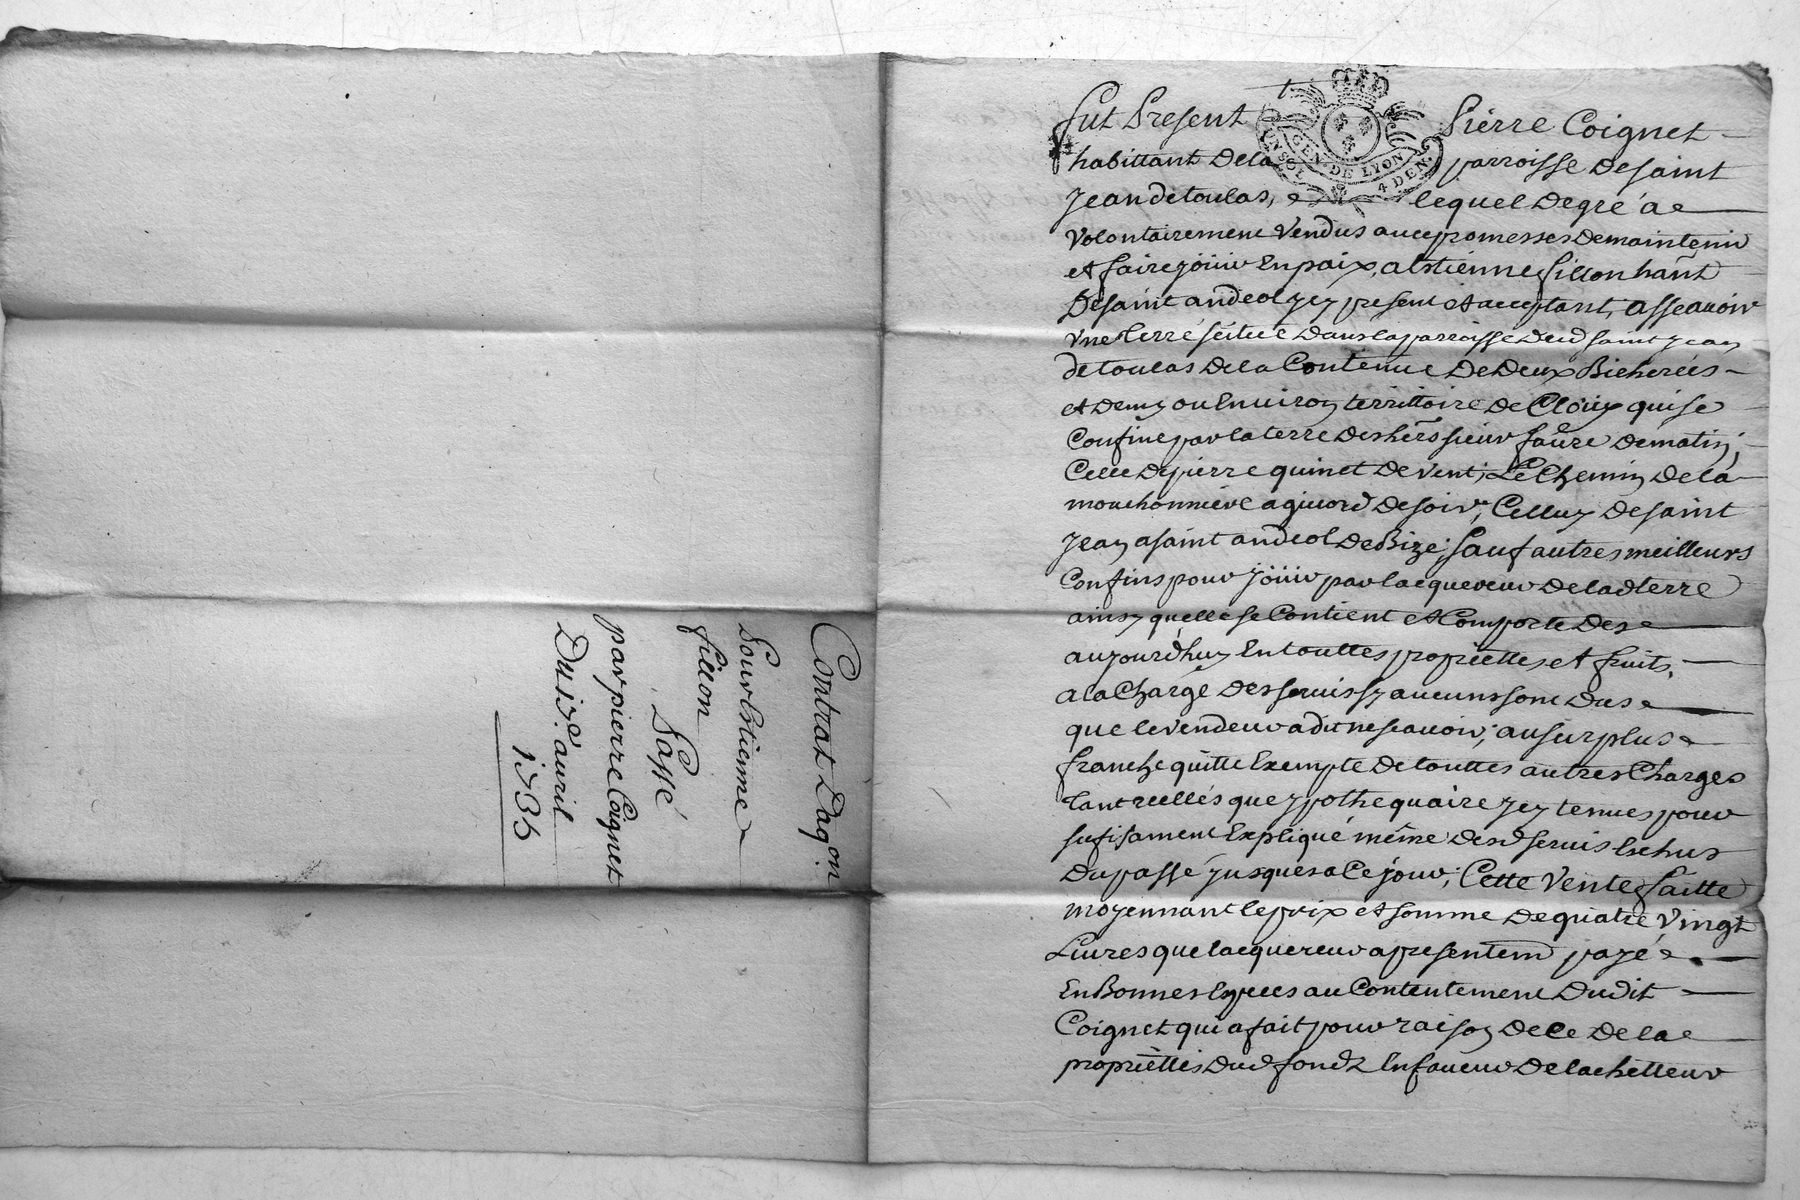 Contrat Daq.on
Pour Estienne
fillon
Passé
par pierre Coignet
Du 13e. auril
1735
fut Present Pierre Coignet
habittant Dela parroisse De saint
Jean de toulas, lequel De gré a
Volontairement Vendus auec promesses De maintenir
et faire jöuir En paix, a Estienne fillon hañt
De saint andeol Jcy present et acceptant, asseauoir
Vne terre scituée Dans la parroisse Dud saint Jean
de toulas De la Contenue De Deux Bicherées
et Demy ou Enuiron territtoire De Cloüy qui se
Confine par la terre Des hers sieur faure De matin;
Celle De pierre quinet De Vent; Le Chemin De la
mouchonniere a giuord De soir; Celluy De saint
Jean a saint andeol De Bize; sauf autres meilleurs
Confins pour Jöuir par lacquereur De lad terre
ainsy quelle se Contient et Comporte Des
aujourd'huy En touttes propriettes et fruits,
a la Charge Des seruis sy aucuns sont Dus
que le Vendeur a dit ne scauoir; au surplus
franche quitte Exempte De touttes autres Charges
tant reelles que ypothequaire Jcy tenues pour
sufisament Expliqué même Desd seruis Echus
Du passé jusques a Ce jour; Cette Vente faitte
moyennant le prix et somme De quatre Vingt
Liures que lacquereur a presentemt payé
En Bonnes Espeçes au Contentement Dudit
Coignet qui a fait pour raison De Ce De la
proprietté Dud fondz En faueur De lachetteur
GEN. DE LYON
UN SOL 4 DEN.